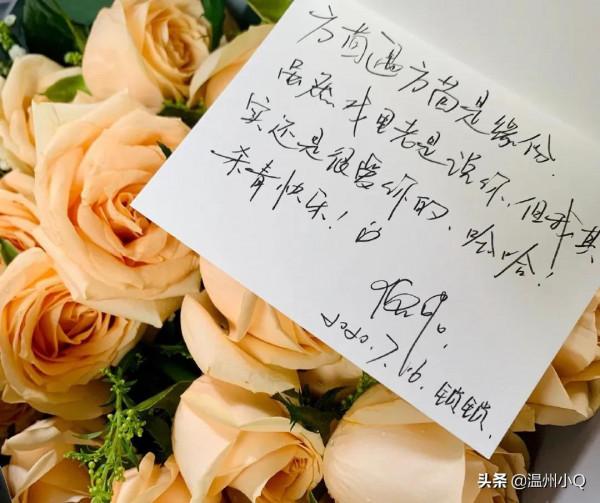 方茴遇方茴是缘份.
虽然戏里老是说你,但我其
实还是很爱你的、哈哈!
杀青快乐!
2020.7.16. 锁锁.
头条 @温州小Q